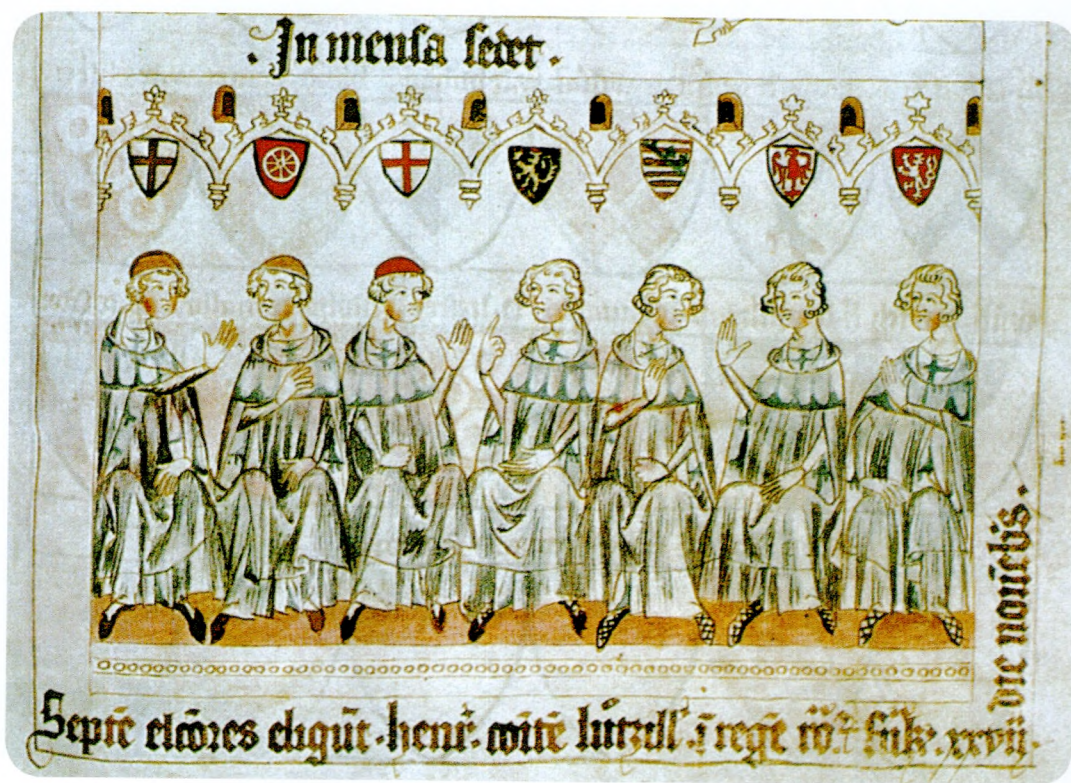 . In mensa sedet .
Septē elcōres eligūt . henr̄ . comitē lutzill' . ī regē ro͞ . xxvij
die novēbis .